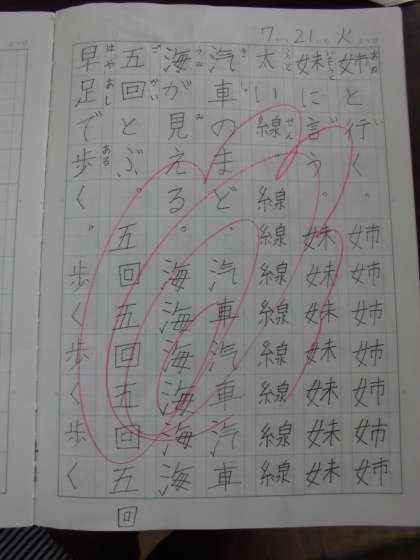 7 21 火
姉と行く。姉姉姉姉姉姉姉
あね い
妹に言う。妹妹妹妹妹妹妹
いもうと い
太い線。線線線線線線線線
ふと せん
汽車のまど。汽車汽車汽車
き しゃ
海が見える。海海海海海海
うみ み
五回とぶ。五回五回五回五回
ご かい
早足で歩く。歩く歩く歩く
はやあし ある